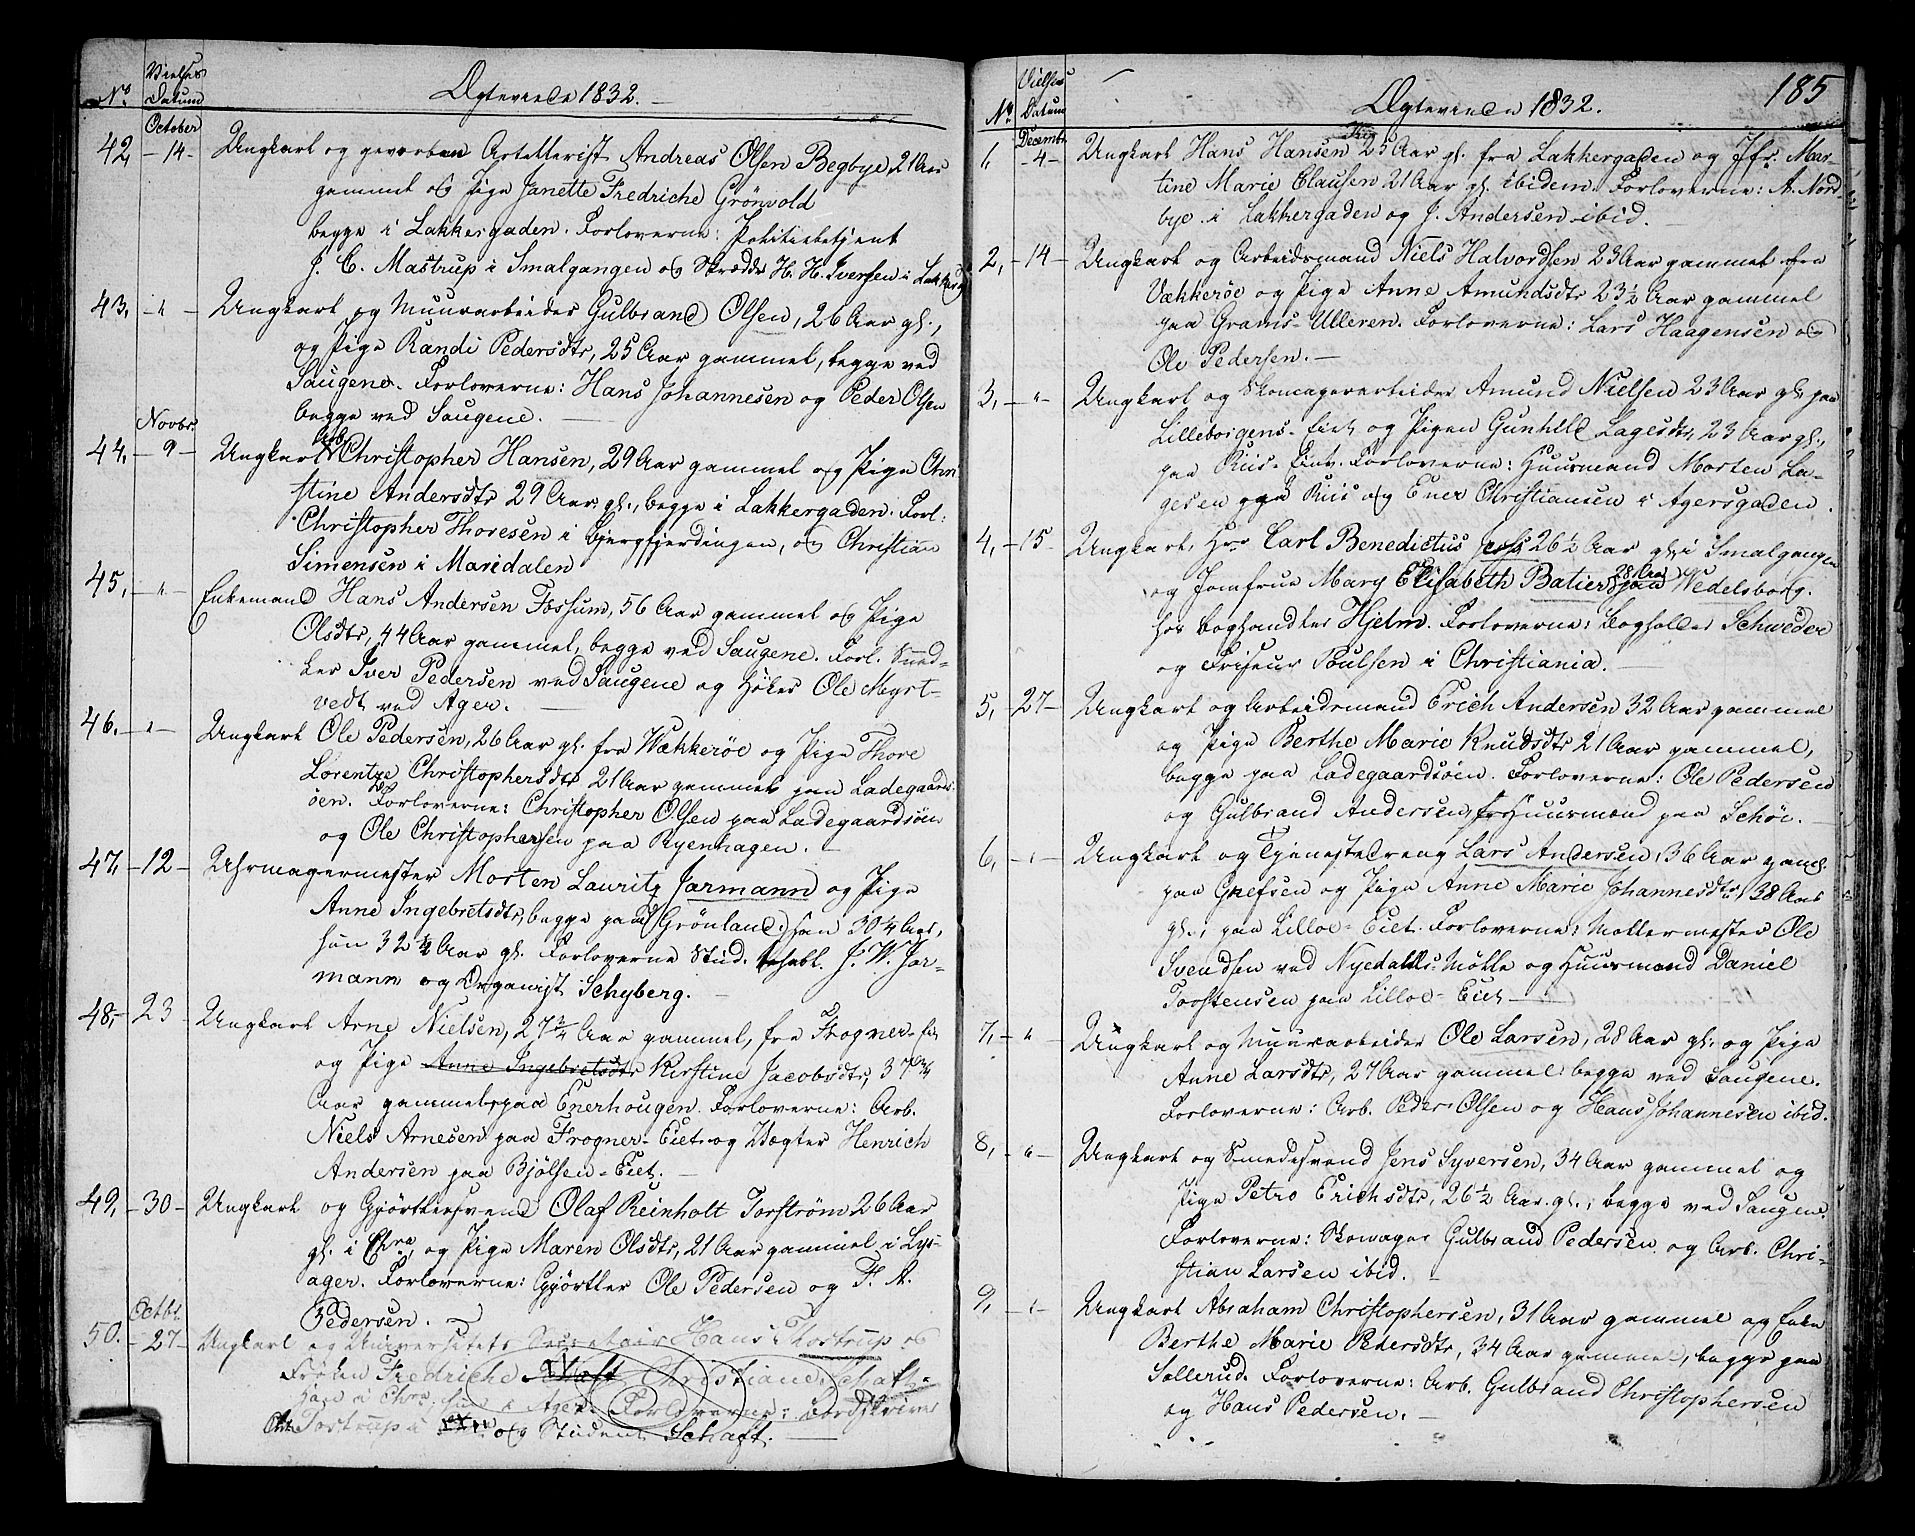 No. Vielses Datum
Ægteviede 1832.
October
42, 14 Ungkarl og gevorben Artellerist Andreas Olsen Begbye 21 Aar
gammel og Pige Janette Fredriche Grönvold
begge i Lakkergaden. Forloverne: Politiebetjent
J. C. Mastrup i Smalgangen og Skrædder H. H. Iversen i Lakkerg.
43, " Ungkarl og Muurarbeider Gulbrand Olsen, 26 Aar gl.,
og Pige Randi Pedersdtr, 25 Aar gammel, begge ved
Saugene. Forloverne: Hans Johannesen og Peder Olsen
begge ved Saugene.
Novbr.
44, 9 Ungkarl Arb. Christopher Hansen, 29 Aar gammel og Pige Chri-
stine Andersdtr 29 Aar gl., begge i Lakkergaden. Forl:
Christopher Thoresen i Bjergfjerdingen, og Christian
Simensen i Maridalen
45, " Enkemand Hans Andersen Fossum, 56 Aar gammel og Pige
Olsdtr, 44 Aar gammel, begge ved Saugene. Forl. Sned-
ker Iver Pedersen ved Saugene og Höker Ole Myrt-
vedt ved Ager.
46. " Ungkarl Ole Pedersen, 26 Aar gl. fra Wækkeröe og Pige Thore
Lorentze Christophersdtr 21 Aar gammel paa Ladegaards-
öen. Forloverne: Christopher Olsen paa Ladegaardsöen
og Ole Christophersen paa Ryenhagen.
47, 12 Uhrmagermester Morten Lauritz Jarmann og Pige
Anne Ingebretsdtr, begge paa Grönland, han 30¼ Aar,
hun 32½ Aar gl. Forloverne Stud. J. W. Jar-
mann og Organist Schyberg.
48, 23 Ungkarl Arne Nielsen, 27¾ Aar gammel, fra Frogner-Eiet
og Pige Anne Ingebretsdtr Kirstine Jacobsdtr, 37¾
Aar gammel paa Enerhougen. Forloverne: Arb.
Niels Arnesen paa Frogner-Eiet og Vægter Henrich
Andersen paa Bjölsen-Eiet.
49, 30 Ungkarl og Gjörtlersvend Olaf Reinholt Torström 26 Aar
gl. i Chra, og Pige Maren Olsdtr, 21 Aar gammel i Lys-
ager. Forloverne: Gjörtler Ole Pedersen og F. A.
Pedersen.
Octbr.
50. 27 Ungkarl og Universitets Secretair Hans Thostrup og
Fröken Fredriche Schaft Christiane Schaft.
Han i Chra, hun i Ager. Forloverne: Bordskriver
Tostrup i og Student Schaft.
185
No. Vielses Datum
Ægteviede 1832.
Decembr.
1, 4 Ungkarl Hans Hansen 25 Aar gl. fra Lakkergaden og Jfr. Mar-
tine Marie Clausen 21 Aar gl. ibidem. Forloverne: A. Nord-
bye i Lakkergaden og J. Andersen ibid.
2, 14 Ungkarl og Arbeidsmand Niels Halvordsen 23 Aar gammel fra
Vækkeröe og Pige Anne Amundsdtr 23½ Aar gammel
paa Grams-Ulleren. Forloverne: Lars Haagensen og
Ole Pedersen.
3, " Ungkarl og Skomagerarbeider Amund Nielsen 23 Aar gl. paa
Lilleborgens-Eiet og Pigen Gunhild Lagesdtr 23 Aar gl.,
paa Riis-Eiet. Forloverne: Huusmand Morten La-
gesen paa Riis og Ener Christiansen i Agersgaden.
4, 15 Ungkarl, Hrr Carl Benedictus 26½ Aar gl. i Smalgangen
og Jomfrue Mary Elisabeth Batier 28 Aar paa Wedelsborg.
hos Boghandler Hjelm. Forloverne: Bogholder Schweder
og Friseur Poulsen i Christiania.
5, 27 Ungkarl og Arbeidsmand Erich Andersen 32 Aar gammel
og Pige Berthe Marie Knudsdtr 21 Aar gammel,
begge paa Ladegaardsöen. Forloverne: Ole Pedersen
og Gulbrand Andersen Huusmand paa Schöi.
6, " Ungkarl og Tjenestedreng Lars Andersen, 36 Aar gaml.
paa Grefsen og Pige Anne Marie Johannesdtr, 38 Aar
gl., paa Lilloe-Eiet. Forloverne: Møllermester Ole
Svendsen ved Nyedalls-Mölle og Huusmand Daniel
Torstensen paa Lilloe-Eiet
7, " Ungkarl og Muurarbeider Ole Larsen, 28 Aar gl. og Pige
Anne Larsdtr, 27 Aar gammel begge ved Saugene.
Forloverne: Arb. Peder Olsen og Hans Johannesen ibid.
8, " Ungkarl og Smedesvend Jens Syversen, 34 Aar gammel og
Pige Petro Erichsdtr, 26½ Aar gl., begge ved Saugene.
Forloverne: Skomager Gulbrand Pedersen og Arb. Chri-
stian Larsen ibid.
9, " Ungkarl Abraham Christophersen, 31 Aar gammel og Enke
Berthe Marie Pedersdtr, 34 Aar gammel, begge paa
Sollerud. Forloverne: Arb. Gulbrand Christophersen
og Hans Pedersen.